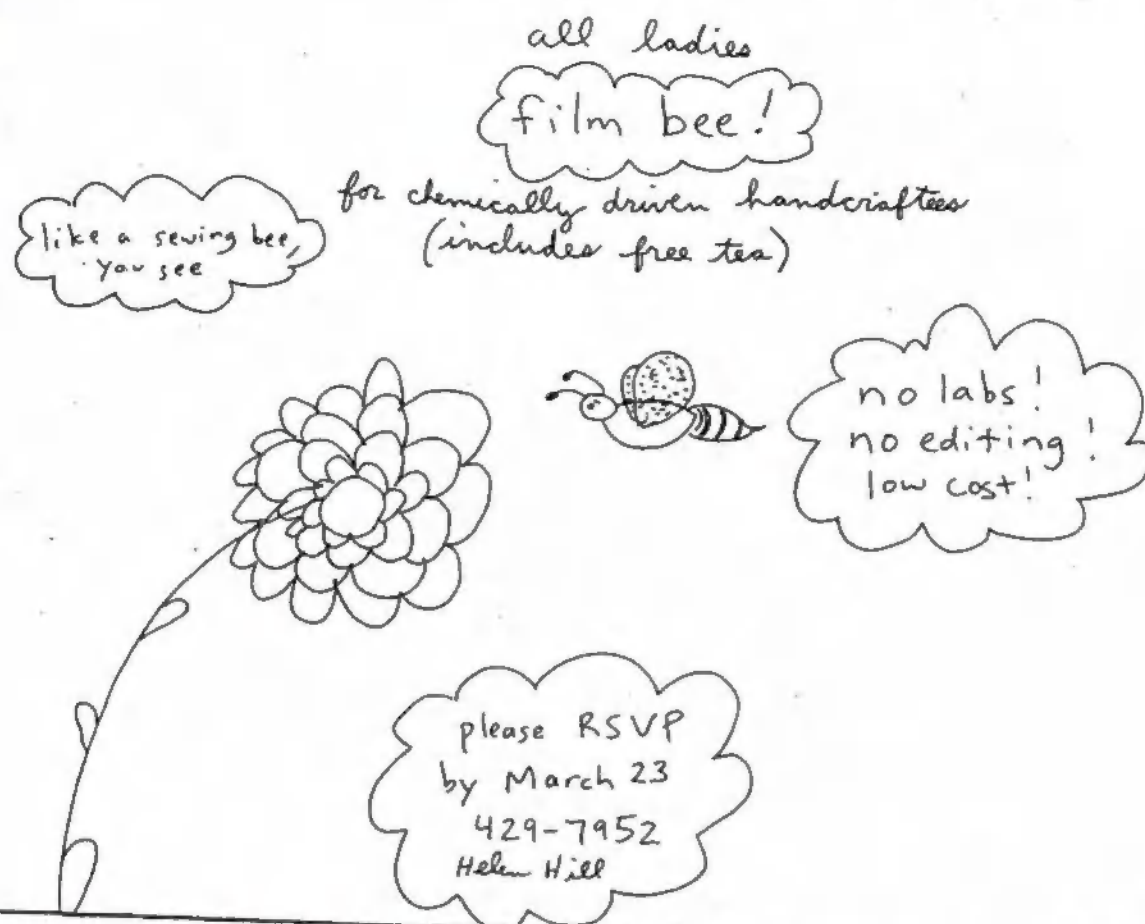 all ladies
film bee!
for chemically driven handcraftees
(includes free tea)
like a sewing bee,
you see
no labs!
no editing!
low cost!
please RSVP
by March 23
429-7952
Helen Hill